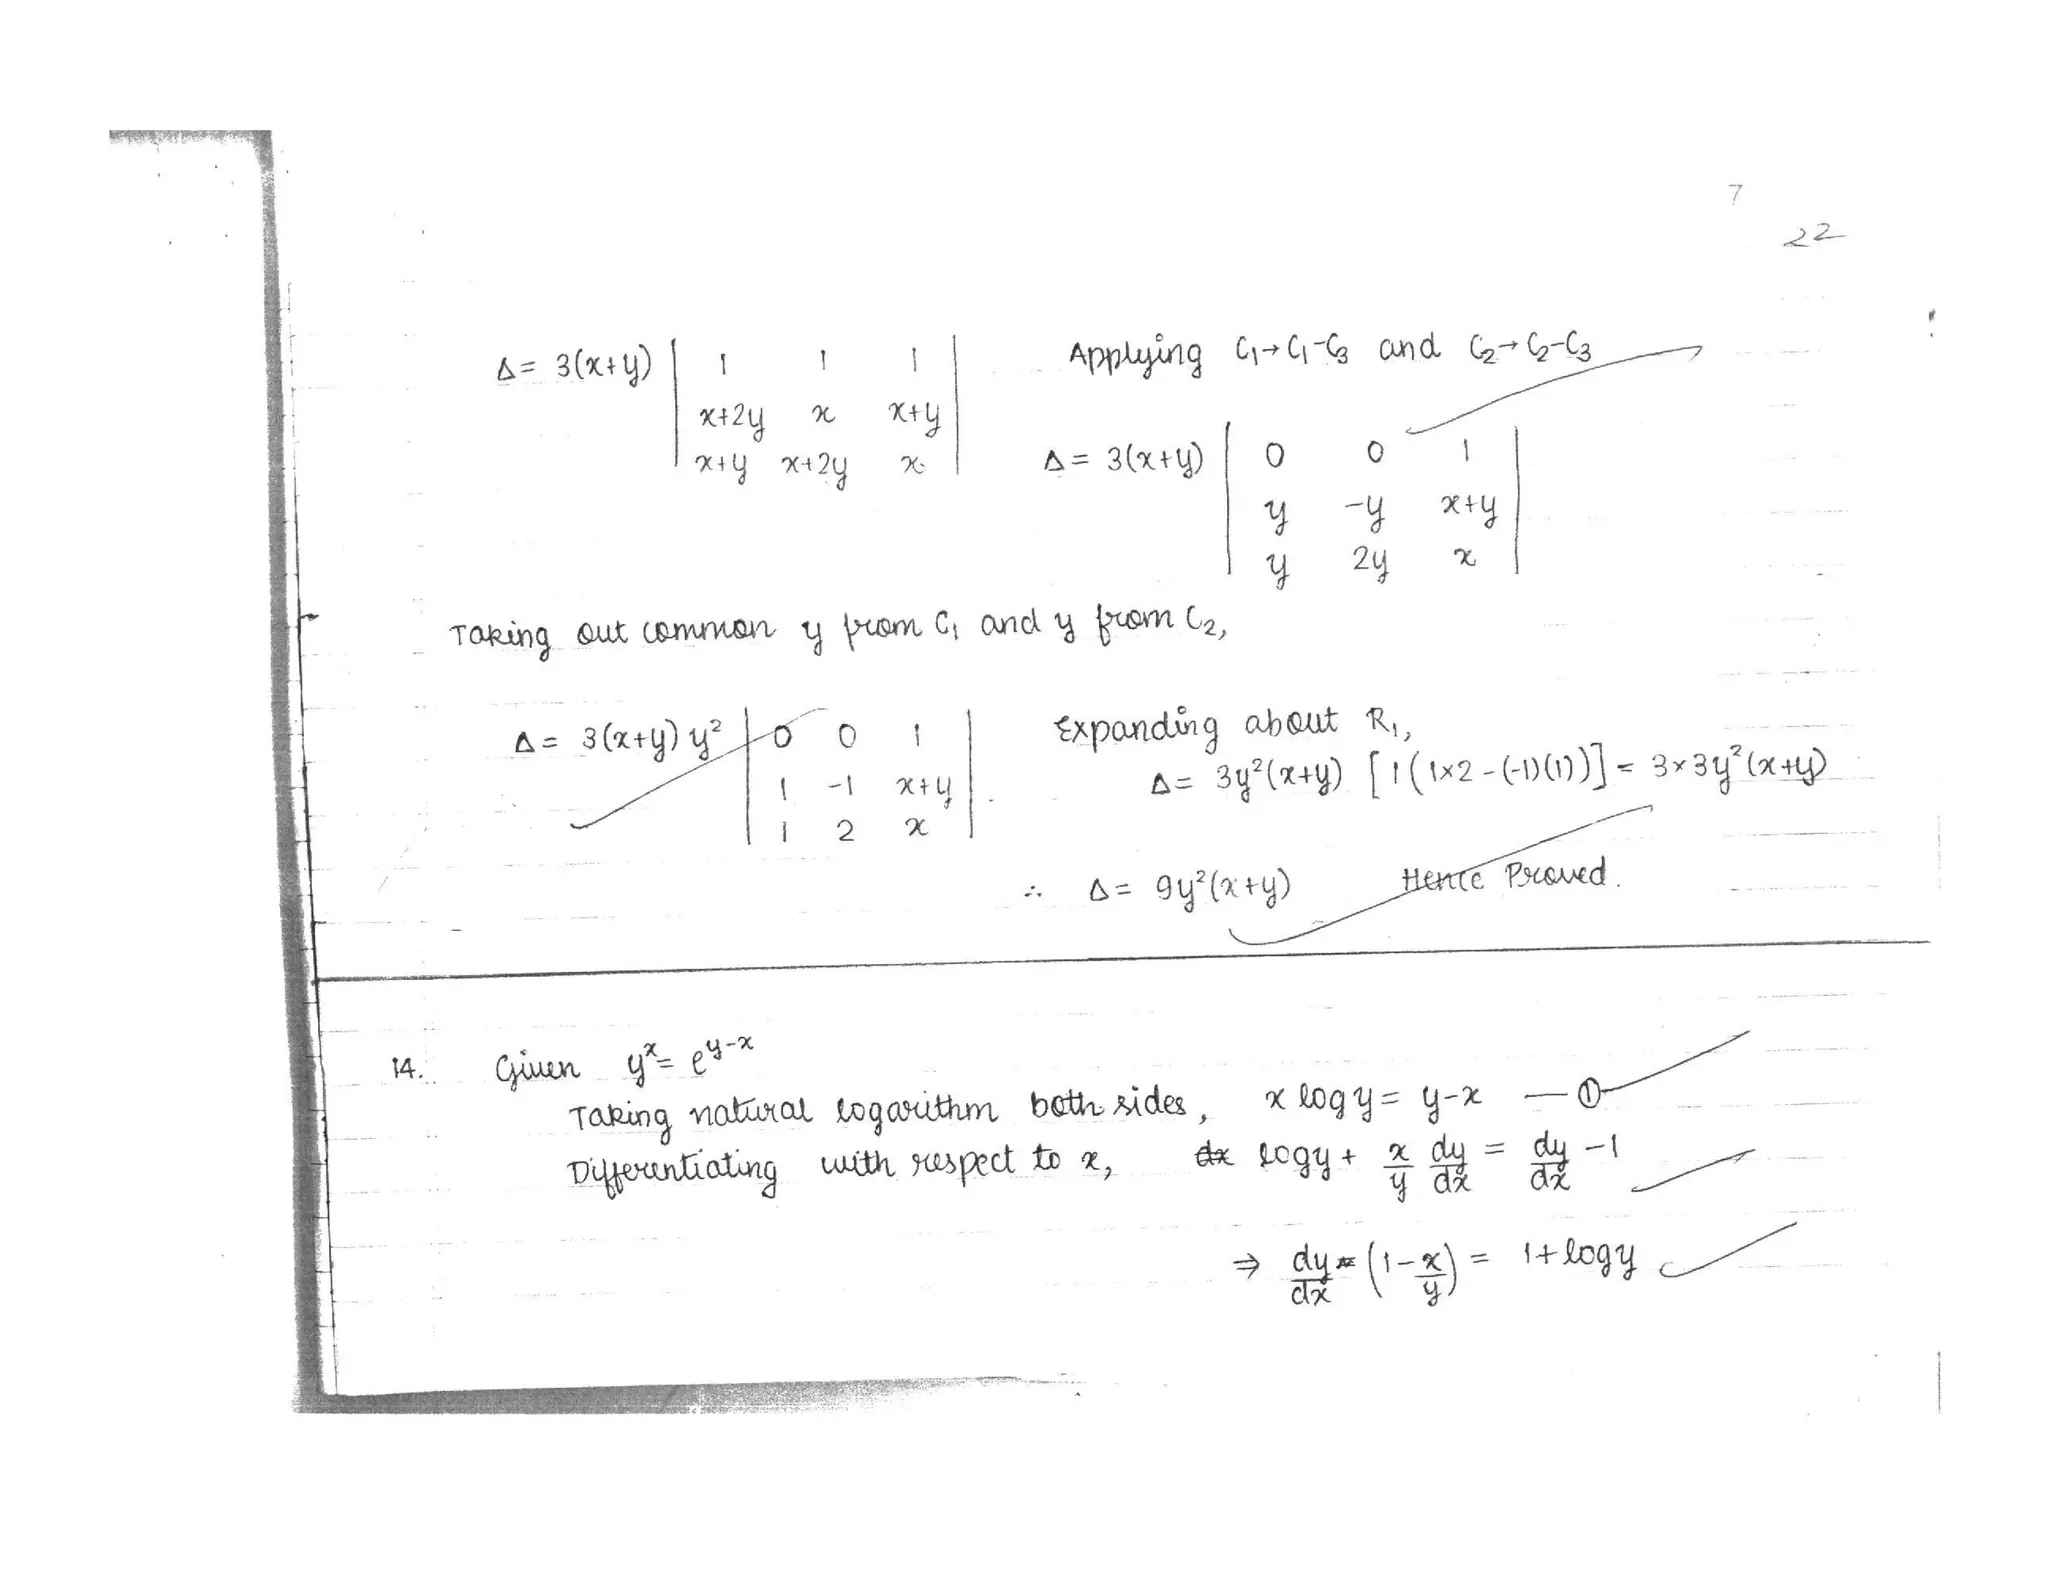 7
22
Δ = 3(x+y) | 1 1 1 |
| x+2y x x+y |
| x+y x+2y x |
Applying C₁→C₁-C₃ and C₂→C₂-C₃
Δ = 3(x+y) | 0 0 1 |
| y -y x+y |
| y 2y x |
Taking out common y from C₁ and y from C₂,
Δ = 3(x+y) y² | 0 0 1 |
| 1 -1 x+y |
| 1 2 x |
Expanding about R₁,
Δ = 3y²(x+y) [1(1×2-(-1)(1))] = 3×3y²(x+y)
∴ Δ = 9y²(x+y) Hence Proved.
14. Given yˣ = e^(y-x)
Taking natural logarithm both sides, x log y = y-x — ①
Differentiating with respect to x, dx log y + x/y dy/dx = dy/dx - 1
⇒ dy/dx = (1 - x/y) = 1 + log y